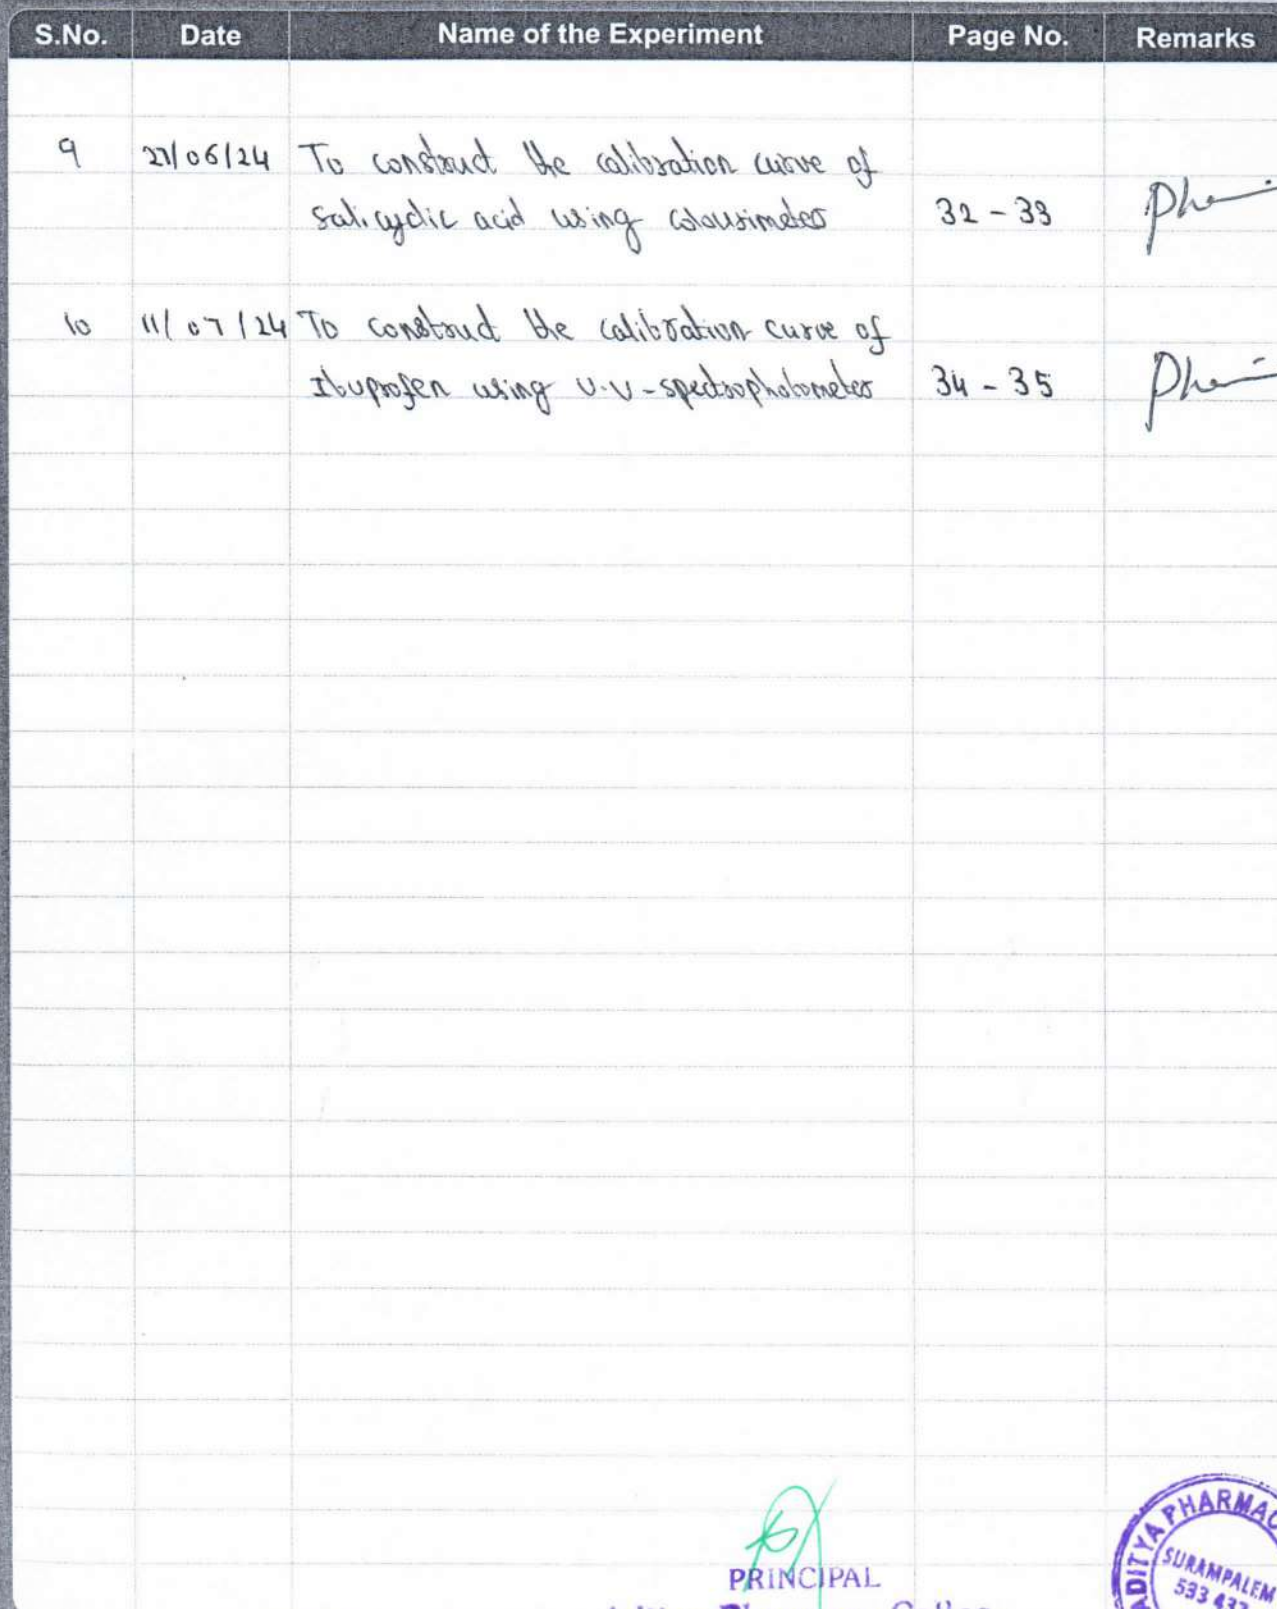 S.No. Date Name of the Experiment Page No. Remarks
9 27/06/24 To construct the calibration curve of
Salicyclic acid using colourimeter 32 - 33
10 11/07/24 To construct the calibration curve of
Ibuprofen using U.V-spectrophotometer 34 - 35
PRINCIPAL
ADITYA PHARMAC
SURAMPALEM
533 437